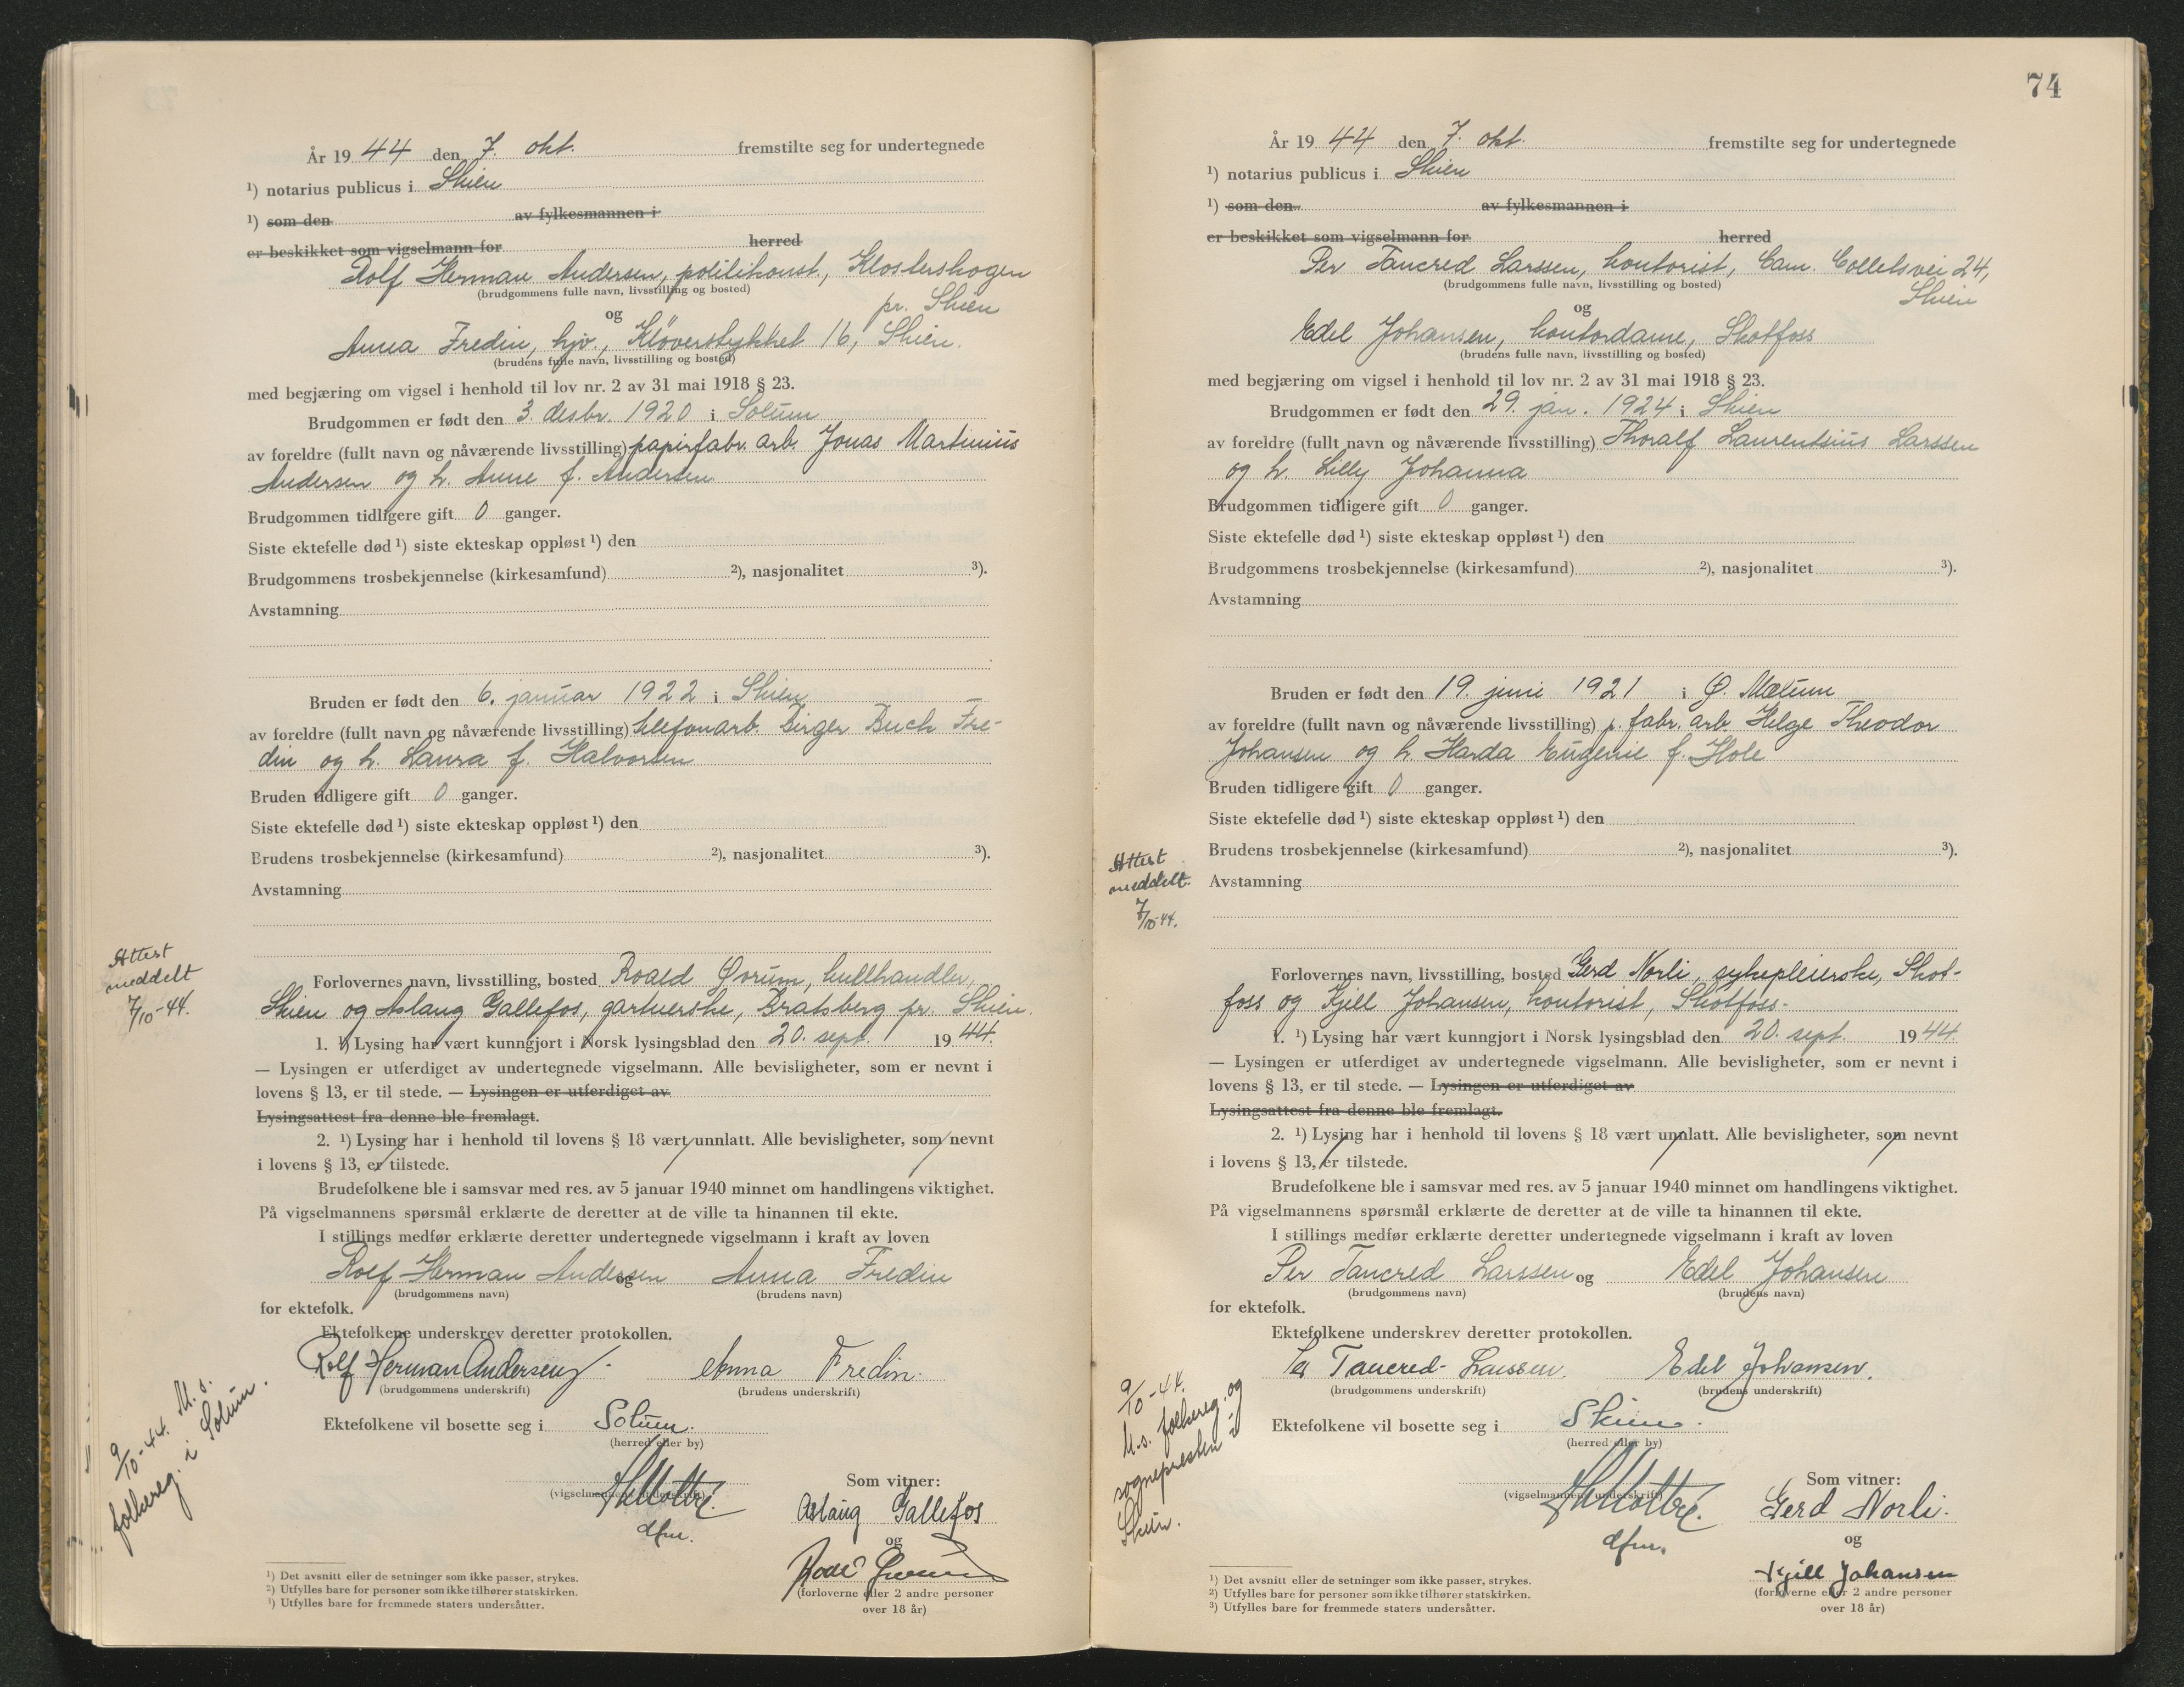 År 19 44 den 7. okt. fremstilte seg for undertegnede
¹) notarius publicus i Skien
¹) som den av fylkesmannen i
er beskikket som vigselmann for herred
Rolf Herman Andersen, politikonst., Klosterskogen
(brudgommens fulle navn, livsstilling og bosted)
pr. Skien
og
Anna Fredin, hjv., Kløverstykket 16, Skien.
(brudens fulle navn, livsstilling og bosted)
med begjæring om vigsel i henhold til lov nr. 2 av 31 mai 1918 § 23.
Brudgommen er født den 3. desbr. 1920 i Solum
av foreldre (fullt navn og nåværende livsstilling) papirfabr. arb. Jonas Martinius
Andersen og h. Anne f. Andersen
Brudgommen tidligere gift 0 ganger.
Siste ektefelle død ¹) siste ekteskap oppløst ¹) den
Brudgommens trosbekjennelse (kirkesamfund) ²), nasjonalitet ³).
Avstamning
Bruden er født den 6. januar 1922 i Skien
av foreldre (fullt navn og nåværende livsstilling) telefonarb. Birger Buch Fre-
din og h. Laura f. Halvorsen
Bruden tidligere gift 0 ganger.
Siste ektefelle død ¹) siste ekteskap oppløst ¹) den
Brudens trosbekjennelse (kirkesamfund) ²), nasjonalitet ³).
Avstamning
Attest
meddelt
7/10-44.
Forlovernes navn, livsstilling, bosted Roald Qvrum, kullhandler,
Skien og Aslaug Gallefos, gartnerske, Bratsberg pr. Skien.
1. ¹) Lysing har vært kunngjort i Norsk lysingsblad den 20. sept. 19 44.
— Lysingen er utferdiget av undertegnede vigselmann. Alle bevisligheter, som er nevnt i
lovens § 13, er til stede. — Lysingen er utferdiget av
Lysingsattest fra denne ble fremlagt.
2. ¹) Lysing har i henhold til lovens § 18 vært unnlatt. Alle bevisligheter, som nevnt
i lovens § 13, er tilstede.
Brudefolkene ble i samsvar med res. av 5 januar 1940 minnet om handlingens viktighet.
På vigselmannens spørsmål erklærte de deretter at de ville ta hinannen til ekte.
I stillings medfør erklærte deretter undertegnede vigselmann i kraft av loven
Rolf Herman Andersen og Anna Fredin
(brudgommens navn) (brudens navn)
for ektefolk.
Ektefolkene underskrev deretter protokollen.
Rolf Herman Andersen Anna Fredin.
(brudgommens underskrift) (brudens underskrift)
9/10-44. M. s.
folkereg. i Solum.
Ektefolkene vil bosette seg i Solum.
(herred eller by)
(vigselmannens underskrift)
dfm.
Som vitner:
Aslaug Gallefos
og
(forloverne eller 2 andre personer
over 18 år)
¹) Det avsnitt eller de setninger som ikke passer, strykes.
²) Utfylles bare for personer som ikke tilhører statskirken.
³) Utfylles bare for fremmede staters undersåtter.
74
År 19 44 den 7. okt. fremstilte seg for undertegnede
¹) notarius publicus i Skien
¹) som den av fylkesmannen i
er beskikket som vigselmann for herred
Per Tancred Larssen, kontorist, Cam. Colletsvei 24,
(brudgommens fulle navn, livsstilling og bosted)
Skien
og
Edel Johansen, kontordame, Skotfoss
(brudens fulle navn, livsstilling og bosted)
med begjæring om vigsel i henhold til lov nr. 2 av 31 mai 1918 § 23.
Brudgommen er født den 29. jan. 1924 i Skien
av foreldre (fullt navn og nåværende livsstilling) Thoralf Laurentsius Larssen
og h. Lilly Johanna
Brudgommen tidligere gift 0 ganger.
Siste ektefelle død ¹) siste ekteskap oppløst ¹) den
Brudgommens trosbekjennelse (kirkesamfund) ²), nasjonalitet ³).
Avstamning
Bruden er født den 19. juni 1921 i Ø. Mælum
av foreldre (fullt navn og nåværende livsstilling) p. fabr. arb. Helge Theodor
Johansen og h. Harda Eugenie f. Hole
Bruden tidligere gift 0 ganger.
Siste ektefelle død ¹) siste ekteskap oppløst ¹) den
Brudens trosbekjennelse (kirkesamfund) ²), nasjonalitet ³).
Attest
meddelt.
7/10-44.
Avstamning
Forlovernes navn, livsstilling, bosted Gerd Norli, sykepleierske, Skot-
foss og Kjell Johansen, kontorist, Skotfoss.
1. ¹) Lysing har vært kunngjort i Norsk lysingsblad den 20. sept. 19 44.
— Lysingen er utferdiget av undertegnede vigselmann. Alle bevisligheter, som er nevnt i
lovens § 13, er til stede. — Lysingen er utferdiget av
Lysingsattest fra denne ble fremlagt.
2. ¹) Lysing har i henhold til lovens § 18 vært unnlatt. Alle bevisligheter, som nevnt
i lovens § 13, er tilstede.
Brudefolkene ble i samsvar med res. av 5 januar 1940 minnet om handlingens viktighet.
På vigselmannens spørsmål erklærte de deretter at de ville ta hinannen til ekte.
I stillings medfør erklærte deretter undertegnede vigselmann i kraft av loven
Per Tancred Larssen og Edel Johansen
(brudgommens navn) (brudens navn)
for ektefolk.
Ektefolkene underskrev deretter protokollen.
Per Tancred Larssen. Edel Johansen.
(brudgommens underskrift) (brudens underskrift)
9/10-44.
M.s. folkereg. og
sognepresten i
Skien.
Ektefolkene vil bosette seg i Skien.
(herred eller by)
(vigselmannens underskrift)
dfm.
Som vitner:
Gerd Norli.
og
Kjell Johansen
(forloverne eller 2 andre personer
over 18 år)
¹) Det avsnitt eller de setninger som ikke passer, strykes.
²) Utfylles bare for personer som ikke tilhører statskirken.
³) Utfylles bare for fremmede staters undersåtter.